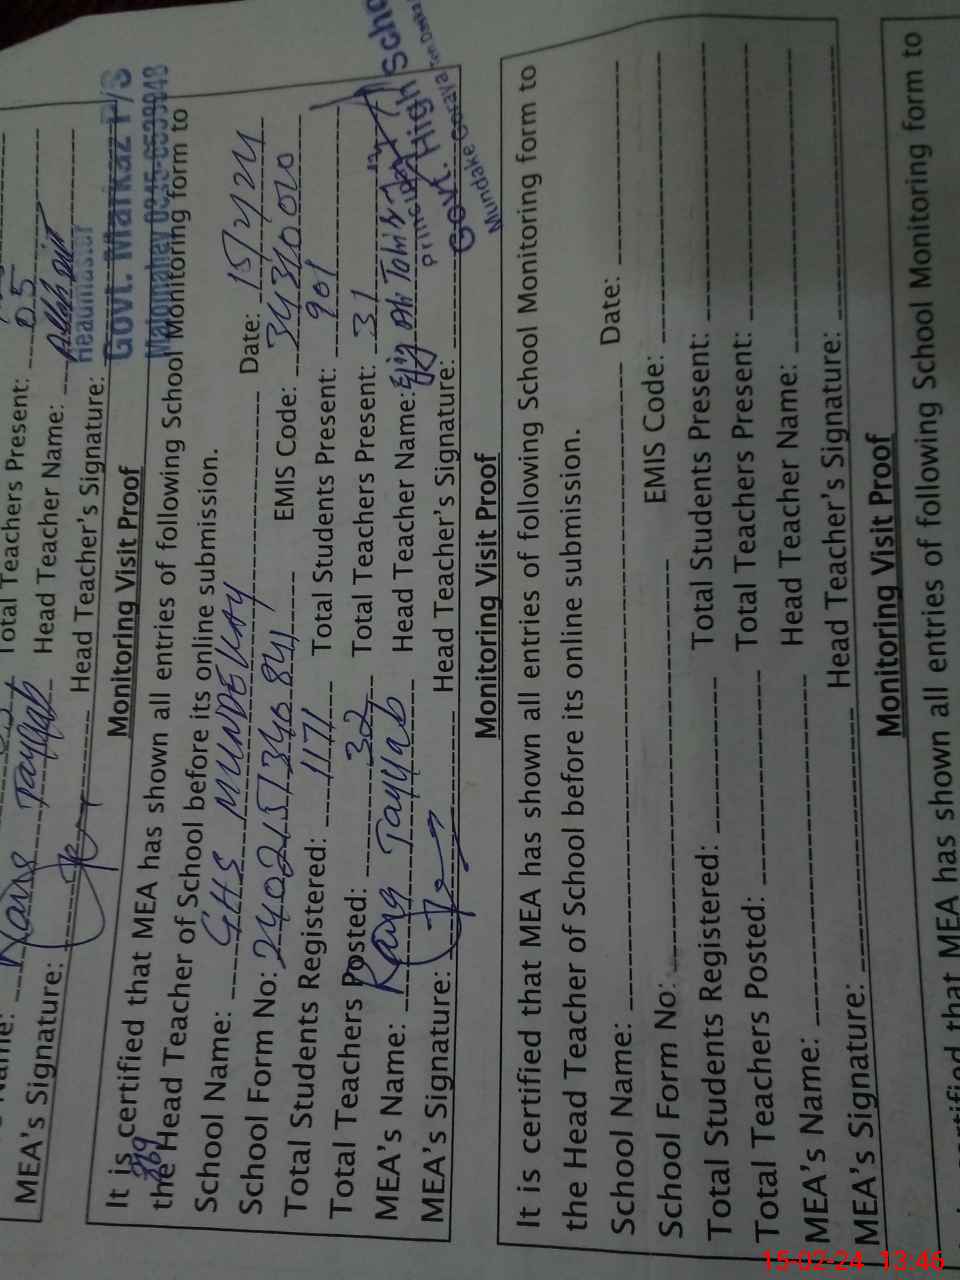 Total Teachers Present: 05
Head Teacher Name:
MEA's Signature: Head Teacher's Signature:
Govt. Markaz P/S
Monitoring Visit Proof
It is certified that MEA has shown all entries of following School Monitoring form to
the Head Teacher of School before its online submission.
School Name: GHS MUNDEKAY Date: 15/2/24
School Form No: EMIS Code: 34310020
Total Students Registered: 1171 Total Students Present: 901
Total Teachers Posted: 32 Total Teachers Present: 31
MEA's Name: Rana Tayyab Head Teacher Name:
MEA's Signature: Head Teacher's Signature:
Principal
Govt. High Scho
Mundake Goraya
Monitoring Visit Proof
It is certified that MEA has shown all entries of following School Monitoring form to
the Head Teacher of School before its online submission.
School Name: Date:
School Form No: EMIS Code:
Total Students Registered: Total Students Present:
Total Teachers Posted: Total Teachers Present:
MEA's Name: Head Teacher Name:
MEA's Signature: Head Teacher's Signature:
Monitoring Visit Proof
certified that MEA has shown all entries of following School Monitoring form to
15-02-24 13:46